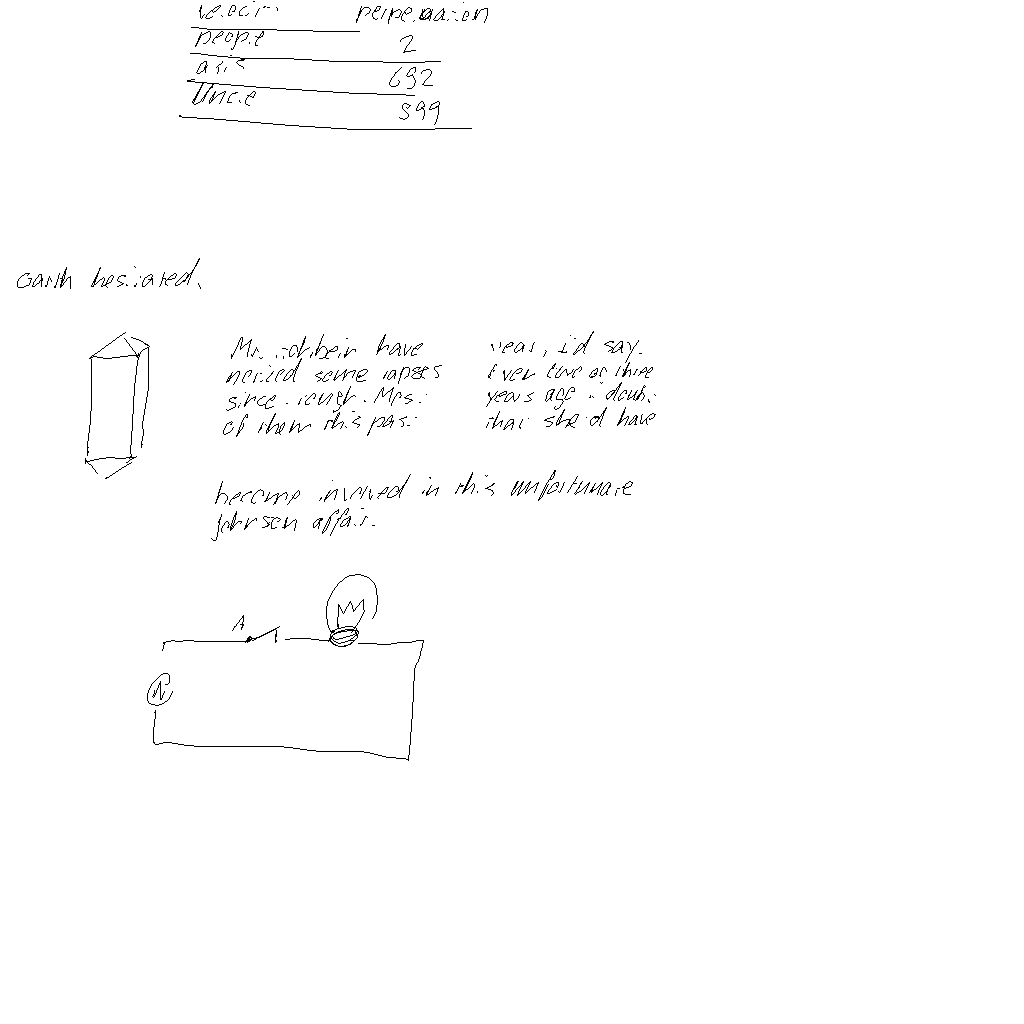 velocity perpetuation
people 2
axis 692
Uncle 599
Garth hesitated.
have
noticed some lapses
since
of them this past
year, I'd say.
Even two or three
years ago I doubt
that she'd have
become involved in this unfortunate
Johnson affair.
A